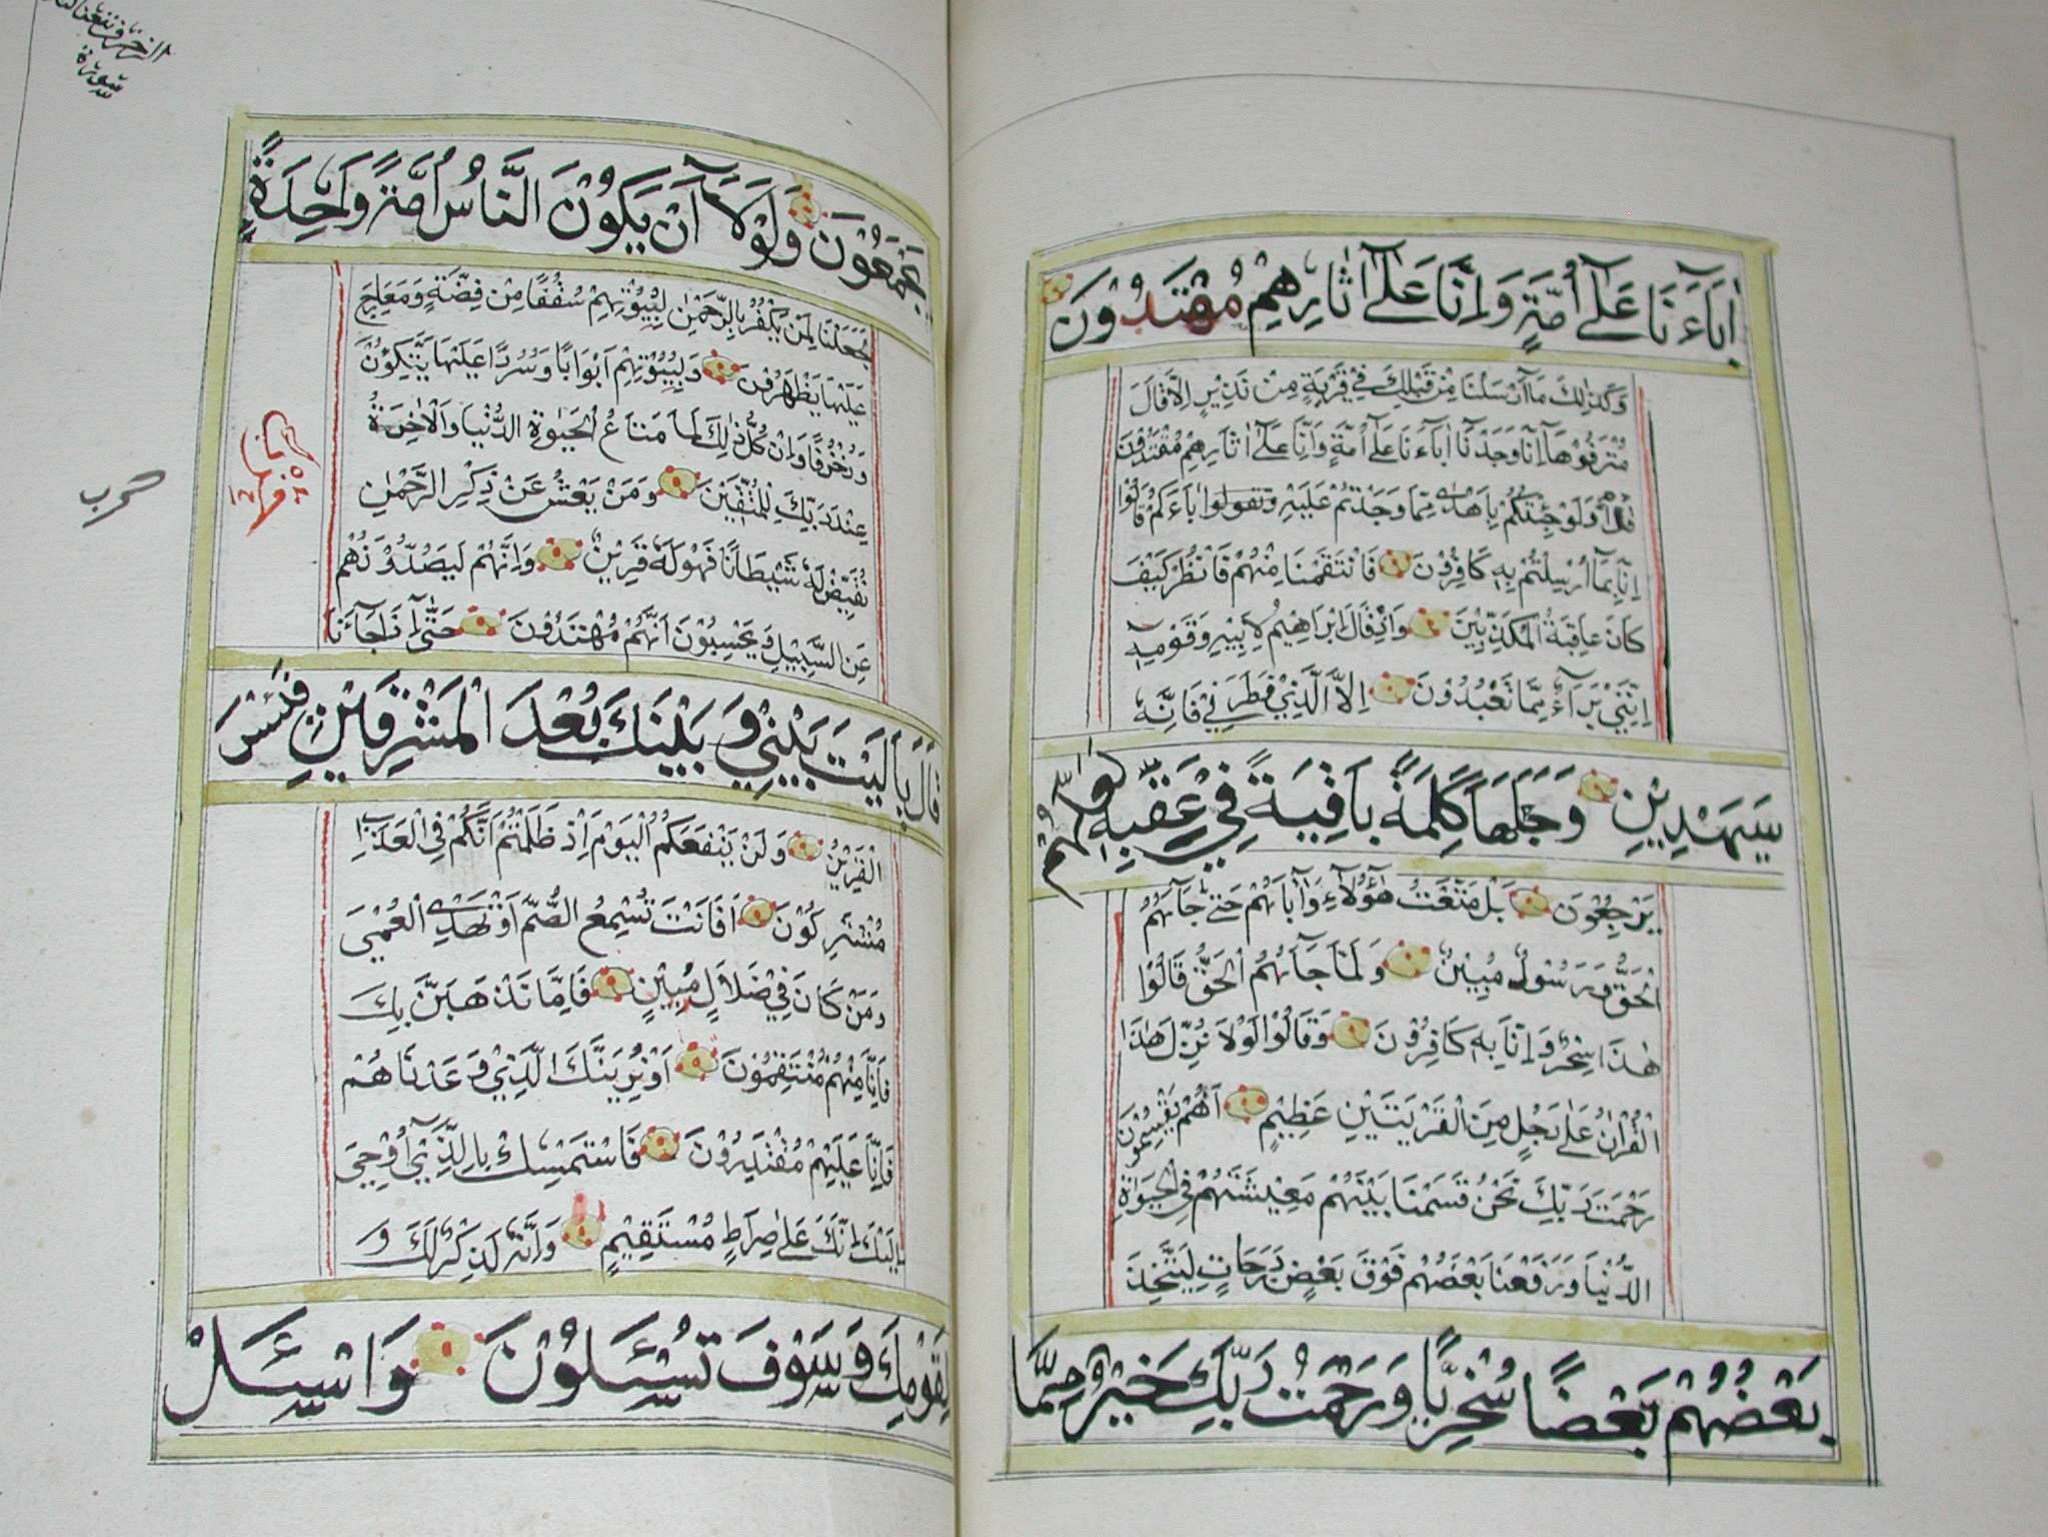 اٰبَآءَنَا عَلٰٓى اُمَّةٍ وَاِنَّا عَلٰٓى اٰثَارِهِمْ مُقْتَدُوْنَ
وَكَذٰلِكَ مَآ اَرْسَلْنَا مِنْ قَبْلِكَ فِيْ قَرْيَةٍ مِنْ نَذِيْرٍ اِلَّا قَالَ
مُتْرَفُوْهَآ اِنَّا وَجَدْنَآ اٰبَآءَنَا عَلٰٓى اُمَّةٍ وَاِنَّا عَلٰٓى اٰثَارِهِمْ مُقْتَدُوْنَ
قُلْ اَوَلَوْ جِئْتُكُمْ بِاَهْدٰى مِمَّا وَجَدْتُمْ عَلَيْهِ اٰبَآءَكُمْ قَالُوْا
اِنَّا بِمَآ اُرْسِلْتُمْ بِهٖ كَافِرُوْنَ فَانْتَقَمْنَا مِنْهُمْ فَانْظُرْ كَيْفَ
كَانَ عَاقِبَةُ الْمُكَذِّبِيْنَ وَاِذْ قَالَ اِبْرَاهِيْمُ لِاَبِيْهِ وَقَوْمِهٖٓ
اِنَّنِيْ بَرَآءٌ مِمَّا تَعْبُدُوْنَ اِلَّا الَّذِيْ فَطَرَنِيْ فَاِنَّهٗ
سَيَهْدِيْنِ وَجَعَلَهَا كَلِمَةً بَاقِيَةً فِيْ عَقِبِهٖ لَعَلَّهُمْ
يَرْجِعُوْنَ بَلْ مَتَّعْتُ هٰٓؤُلَآءِ وَاٰبَآءَهُمْ حَتّٰى جَآءَهُمُ
الْحَقُّ وَرَسُوْلٌ مُبِيْنٌ وَلَمَّا جَآءَهُمُ الْحَقُّ قَالُوْا
هٰذَا سِحْرٌ وَاِنَّا بِهٖ كَافِرُوْنَ وَقَالُوْا لَوْلَا نُزِّلَ هٰذَا
الْقُرْاٰنُ عَلٰى رَجُلٍ مِنَ الْقَرْيَتَيْنِ عَظِيْمٍ اَهُمْ يَقْسِمُوْنَ
رَحْمَتَ رَبِّكَ نَحْنُ قَسَمْنَا بَيْنَهُمْ مَعِيْشَتَهُمْ فِي الْحَيٰوةِ
الدُّنْيَا وَرَفَعْنَا بَعْضَهُمْ فَوْقَ بَعْضٍ دَرَجَاتٍ لِيَتَّخِذَ
بَعْضُهُمْ بَعْضًا سُخْرِيًّا وَرَحْمَتُ رَبِّكَ خَيْرٌ مِمَّا
سورة
الزخرف
يَجْمَعُوْنَ وَلَوْلَآ اَنْ يَكُوْنَ النَّاسُ اُمَّةً وَاحِدَةً
لَجَعَلْنَا لِمَنْ يَكْفُرُ بِالرَّحْمٰنِ لِبُيُوْتِهِمْ سُقُفًا مِنْ فِضَّةٍ وَمَعَارِجَ
عَلَيْهَا يَظْهَرُوْنَ وَلِبُيُوْتِهِمْ اَبْوَابًا وَسُرُرًا عَلَيْهَا يَتَّكِؤُنَ
وَزُخْرُفًا وَاِنْ كُلُّ ذٰلِكَ لَمَّا مَتَاعُ الْحَيٰوةِ الدُّنْيَا وَالْاٰخِرَةُ
عِنْدَ رَبِّكَ لِلْمُتَّقِيْنَ وَمَنْ يَعْشُ عَنْ ذِكْرِ الرَّحْمٰنِ
نُقَيِّضْ لَهٗ شَيْطَانًا فَهُوَ لَهٗ قَرِيْنٌ وَاِنَّهُمْ لَيَصُدُّوْنَهُمْ
عَنِ السَّبِيْلِ وَيَحْسَبُوْنَ اَنَّهُمْ مُهْتَدُوْنَ حَتّٰٓى اِذَا جَآءَنَا
قَالَ يَالَيْتَ بَيْنِيْ وَبَيْنَكَ بُعْدَ الْمَشْرِقَيْنِ فَبِئْسَ
الْقَرِيْنُ وَلَنْ يَنْفَعَكُمُ الْيَوْمَ اِذْ ظَلَمْتُمْ اَنَّكُمْ فِي الْعَذَابِ
مُشْتَرِكُوْنَ اَفَاَنْتَ تُسْمِعُ الصُّمَّ اَوْ تَهْدِي الْعُمْيَ
وَمَنْ كَانَ فِيْ ضَلَالٍ مُبِيْنٍ فَاِمَّا نَذْهَبَنَّ بِكَ
فَاِنَّا مِنْهُمْ مُنْتَقِمُوْنَ اَوْ نُرِيَنَّكَ الَّذِيْ وَعَدْنَاهُمْ
فَاِنَّا عَلَيْهِمْ مُقْتَدِرُوْنَ فَاسْتَمْسِكْ بِالَّذِيْٓ اُوْحِيَ
اِلَيْكَ اِنَّكَ عَلٰى صِرَاطٍ مُسْتَقِيْمٍ وَاِنَّهٗ لَذِكْرٌ لَكَ وَ
لِقَوْمِكَ وَسَوْفَ تُسْئَلُوْنَ وَاسْئَلْ
حزب